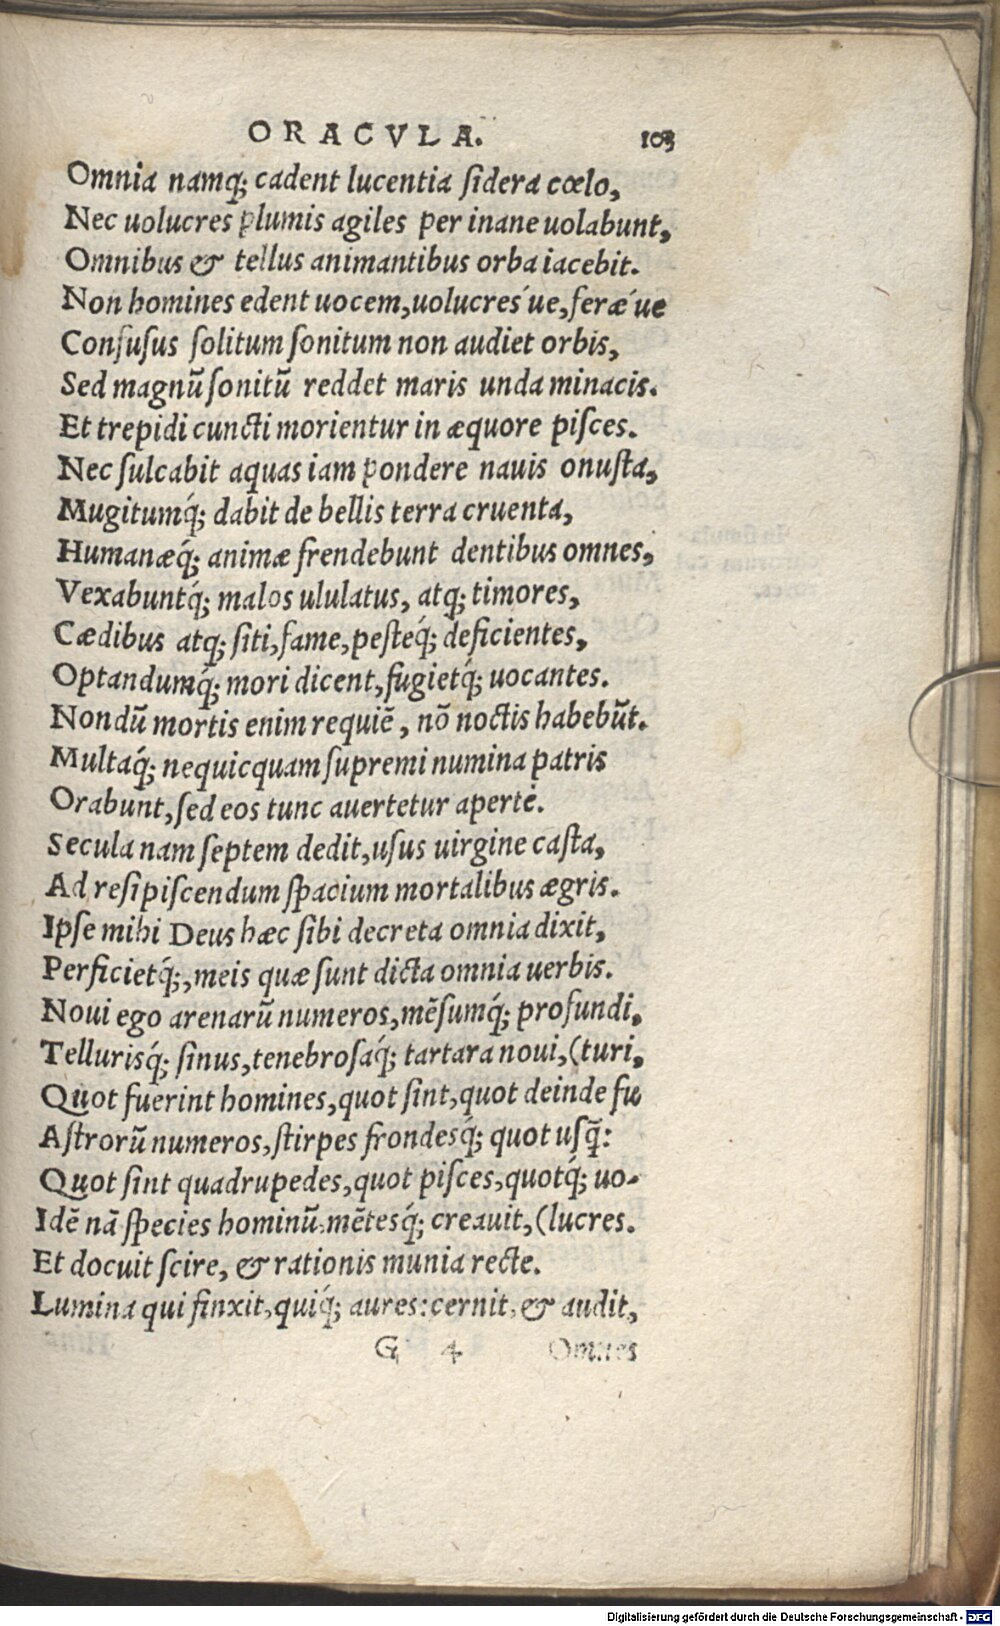 ORACVLA. 103
Omnia namq; cadent lucentia ſidera cœlo,
Nec uolucres plumis agiles per inane uolabunt,
Omnibus & tellus animantibus orba iacebit.
Non homines edent uocem, uolucres´ue, feræ´ue
Confuſus ſolitum ſonitum non audiet orbis,
Sed magnũ ſonitũ reddet maris unda minacis.
Et trepidi cuncti morientur in æquore piſces.
Nec ſulcabit aquas iam pondere nauis onuſta,
Mugitumq́; dabit de bellis terra cruenta,
Humanæq́; animæ frendebunt dentibus omnes,
Vexabuntq́; malos ululatus, atq; timores,
Cædibus atq; ſiti, fame, peſteq́; deficientes,
Optandumq́; mori dicent, fugietq́; uocantes.
Nondũ mortis enim requiẽ, nõ noctis habebũt.
Multaq́; nequicquam ſupremi numina patris
Orabunt, ſed eos tunc auertetur apertè.
Secula nam ſeptem dedit, uſus uirgine caſta,
Ad reſipiſcendum ſpacium mortalibus ægris.
Ipſe mihi Deus hæc ſibi decreta omnia dixit,
Perficietq́;, meis quæ ſunt dicta omnia uerbis.
Noui ego arenarũ numeros, mẽſumq́; profundi,
Telluriſq́; ſinus, tenebroſaq́; tartara noui, (turi,
Quot fuerint homines, quot ſint, quot deinde fu
Aſtrorũ numeros, ſtirpes frondeſq́; quot uſq̃:
Quot ſint quadrupedes, quot piſces, quotq́; uo-
Idẽ nã ſpecies hominũ, mẽteſq́; creauit, (lucres.
Et docuit ſcire, & rationis munia recte.
Lumina qui finxit, quiq́; aures: cernit, & audit,
G 4 Omnes
Digitalisierung gefördert durch die Deutsche Forschungsgemeinschaft - DFG